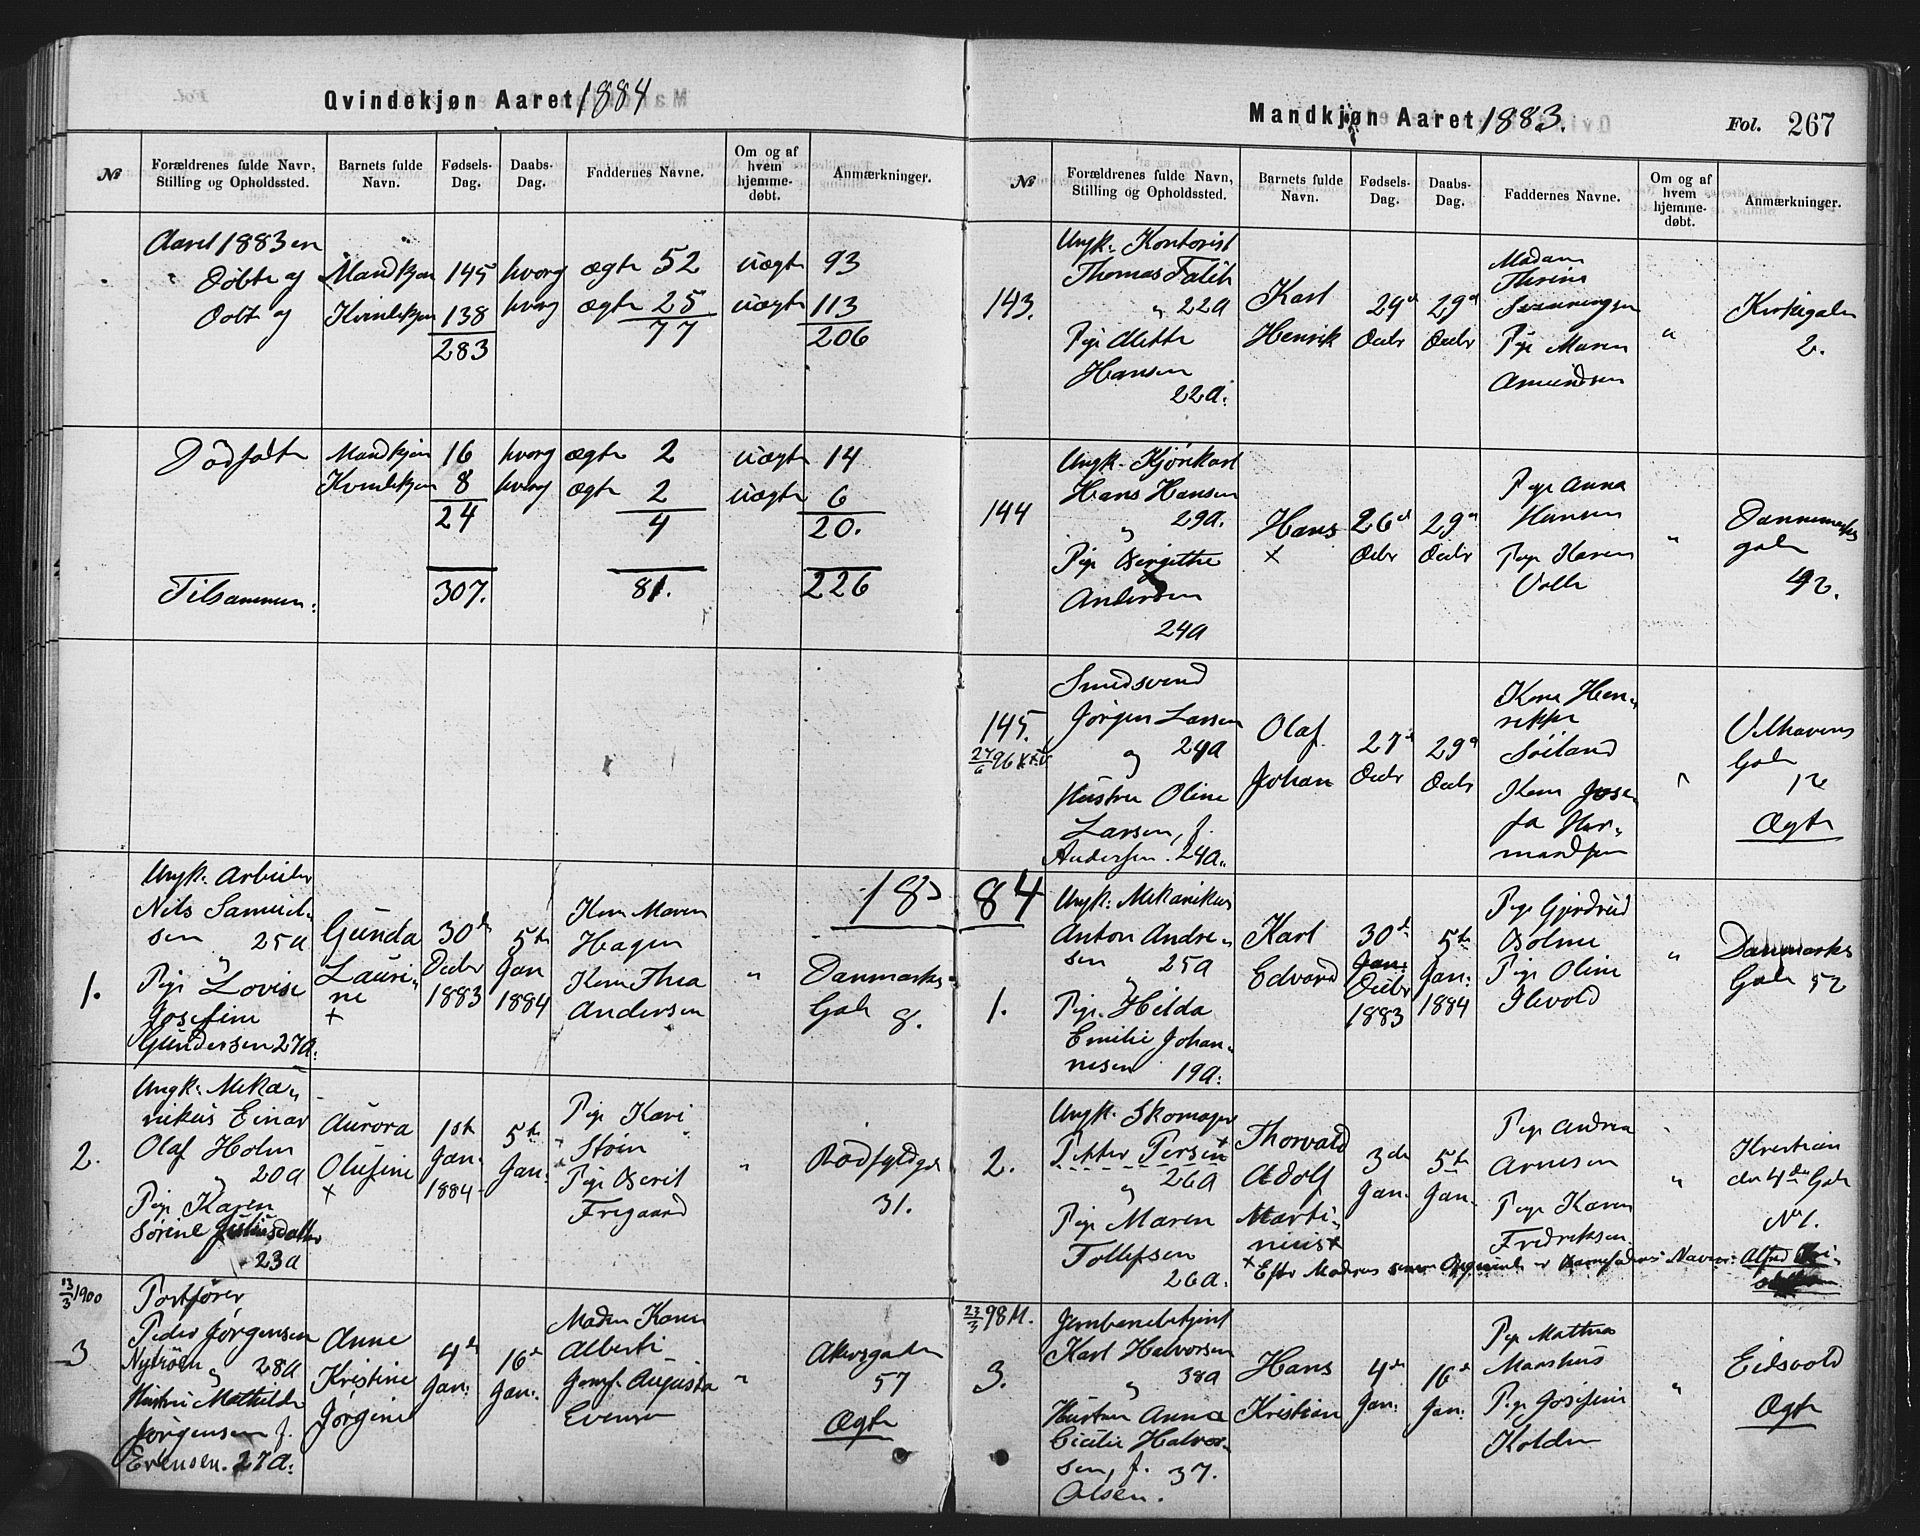 Qvindekjøn Aaret 1884
№
Forældrenes fulde Navn,
Stilling og Opholdssted.
Barnets fulde
Navn.
Fødsels-
Dag.
Daabs-
Dag.
Faddernes Navne.
Om og af
hvem
hjemme-
døbt.
Anmærkninger.
Aaret 1883 er
Døbte af Mandkjøn 145 hvoraf ægte 52 uægte 93
Døbt af Kvindekjøn 138 hvoraf ægte 25 uægte 113
283 77 206
Dødfødte Mandkjøn 16 hvoraf ægte 2 uægte 14
Kvindekjøn 8 hvoraf ægte 2 uægte 6
24 4 20.
Tilsammen: 307. 81. 226
18
1.
Ungk. Arbeider
Nils Samuel-
sen 25a
Pige Lovise
Josefine
Gundersen 27a:
Gunda
Lauri-
ne
+
30d
Decbr
1883
5te
Jan
1884
Kone Maren
Hagen
Kone Thea
Andersen
"
Danmarks
Gade
8.
2.
Ungk. Meka-
nikus Einar
Olaf Holm
20a
Pige Karen
Sørine Juliusdatter
23a
Aurora
Olufine
+
1ste
Jan.
1884
5te
Jan.
Pige Kari
Støen
Pige Berit
Fregaard
"
Rødfyldgd
31.
13/3 1900
3
Portfører
Peder Jørgensen
Nyrøen 28a
Hustru Mathilde
Jørgensen f.
Evensen. 27a:
Anne
Kristine
Jørgine
4de
Jan.
16d
Jan.
Madm Karen
Alberti
Jomf. Augusta
Evensen
"
Akersgaden
57
Ægte
Mandkjøn Aaret 1883.
Fol. 267
№
Forældrenes fulde Navn,
Stilling og Opholdssted.
Barnets fulde
Navn.
Fødsels-
Dag.
Daabs-
Dag.
Faddernes Navne.
Om og af
hvem
hjemme-
døbt.
Anmærkninger.
143.
Ungk. Kontorist
Thomas Falck
22a
Pige Mette
Hansen
22a.
Karl
Henrik
29d
Decbr
29d
Decbr
Madam
Thrine
Svenningsen
Pige Maren
Amundsen
"
Kirkegaden
2.
144
Ungk. Kjørekarl
Hans Hansen
29a.
Pige Birgitthe
Andersen
24a
Hans
+
26d
Decbr
29d
Decbr
Pige Anna
Hansen
Pige Karen
Volle
"
Dannemarks
gade
42.
145.
27/6 96
Smedsvend
Jørgen Larsen
og 24a
Hustru Oline
Larsen, f.
Andersen. 24a.
Olaf
Johan
27d
Decbr
29d
Decbr
Kone Hen-
rikke
Søiland
Kone Jose-
fa Her-
mandsen
"
Velhavens
Gade
12
Ægte
84
1.
Ungk. Mekanikus
Anton Andre-
sen 25a
Pige Hilda
Emilie Johan-
nesen 19a:
Karl
Edvard
30d
Jan.
Decbr
1883
5te
Jan.
1884
Pige Gjerdrud
Bolme
Pige Oline
Flevold
"
Danmarks
Gade 52
2.
Ungk. Skomager
Petter Persen +
og 26a
Pige Maren
Tollefsen
26a.
Thorvald
Adolf
Marti-
nius
3de
Jan.
5te
Jan.
Pige Andrea
Arnesen
Pige Karen
Fredriksen
"
Kristian
den 4de Gade
No 1.
+ Efter Moderens senere Opgivende er Barnefaderens Navn: Alfred
23/3 98 M.
3.
Jernbanebetjent
Karl Halvorsen
38a
Hustru Anna
Cicilie Halvor-
sen, f. 37.
Olsen.
Hans
Kristian
4de
Jan.
16d
Jan.
Pige Mathea
Maashus
Pige Josefine
Kolden
"
Eidsvold
Ægte